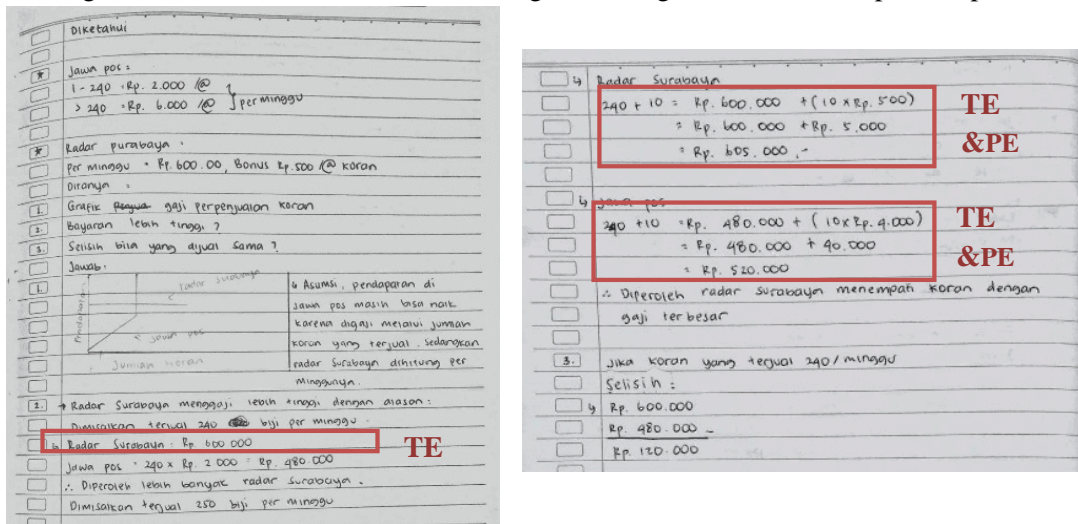 Diketahui
Jawa pos :
1 - 240 : Rp. 2.000 /@
> 240 : Rp. 6.000 /@ } per minggu
Radar purabaya :
Per minggu = Rp. 600.00, Bonus Rp. 500 /@ koran
Ditanya :
1. Grafik gaji perpenjualan koran
2. Bayaran lebih tinggi ?
3. Selisih bila yang dijual sama ?
Jawab :
1.
Pendapatan
radar surabaya
jawa pos
Jumlah koran
↳ Asumsi, pendapatan di
jawa pos masih bisa naik
karena digaji melalui jumlah
koran yang terjual. Sedangkan
radar Surabaya dihitung per
minggunya.
2. → Radar Surabaya menggaji lebih tinggi dengan alasan :
Dimisalkan terjual 240 biji per minggu.
↳ Radar Surabaya : Rp. 600 000
TE
Jawa pos = 240 x Rp. 2 000 = Rp. 480.000
∴ Diperoleh lebih banyak radar surabaya.
Dimisalkan terjual 250 biji per minggu
↳ Radar Surabaya
240 + 10 = Rp. 600.000 + (10 x Rp. 500)
= Rp. 600.000 + Rp. 5.000
= Rp. 605.000,-
TE
&PE
↳ Jawa pos
240 + 10 = Rp. 480.000 + (10 x Rp. 4.000)
= Rp. 480.000 + 40.000
= Rp. 520.000
TE
&PE
∴ Diperoleh radar surabaya menempati koran dengan
gaji terbesar
3. Jika koran yang terjual 240/minggu
Selisih :
↳ Rp. 600.000
Rp. 480.000 -
Rp. 120.000